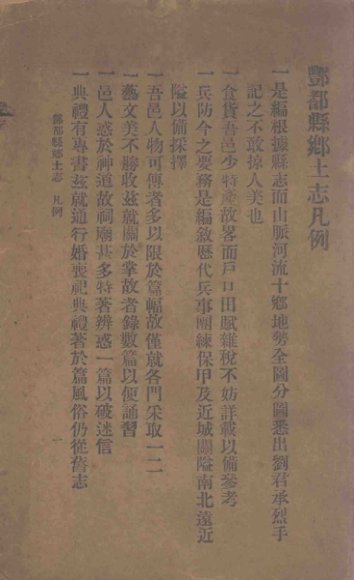 酆都縣鄉土志凡例
一是編根據縣志而山脈河流十鄉地勢全圖分圖悉出劉君承烈手
記之不敢掠人美也
一食貨吾邑少特產故畧而戶口田賦雜稅不妨詳載以備參考
一兵防今之要務是編敘歷代兵事團練保甲及近城關隘南北遠近
隘以備採擇
一吾邑人物可傳者多以限於篇幅故僅就各門采取一二
一藝文美不勝收茲就關於掌故者錄數篇以便誦習
一邑人惑於神道故祠廟甚多特著辨惑一篇以破迷信
一典禮有專書茲就通行婚喪祀典禮著於篇風俗仍從舊志
酆都縣鄉土志 凡例
一